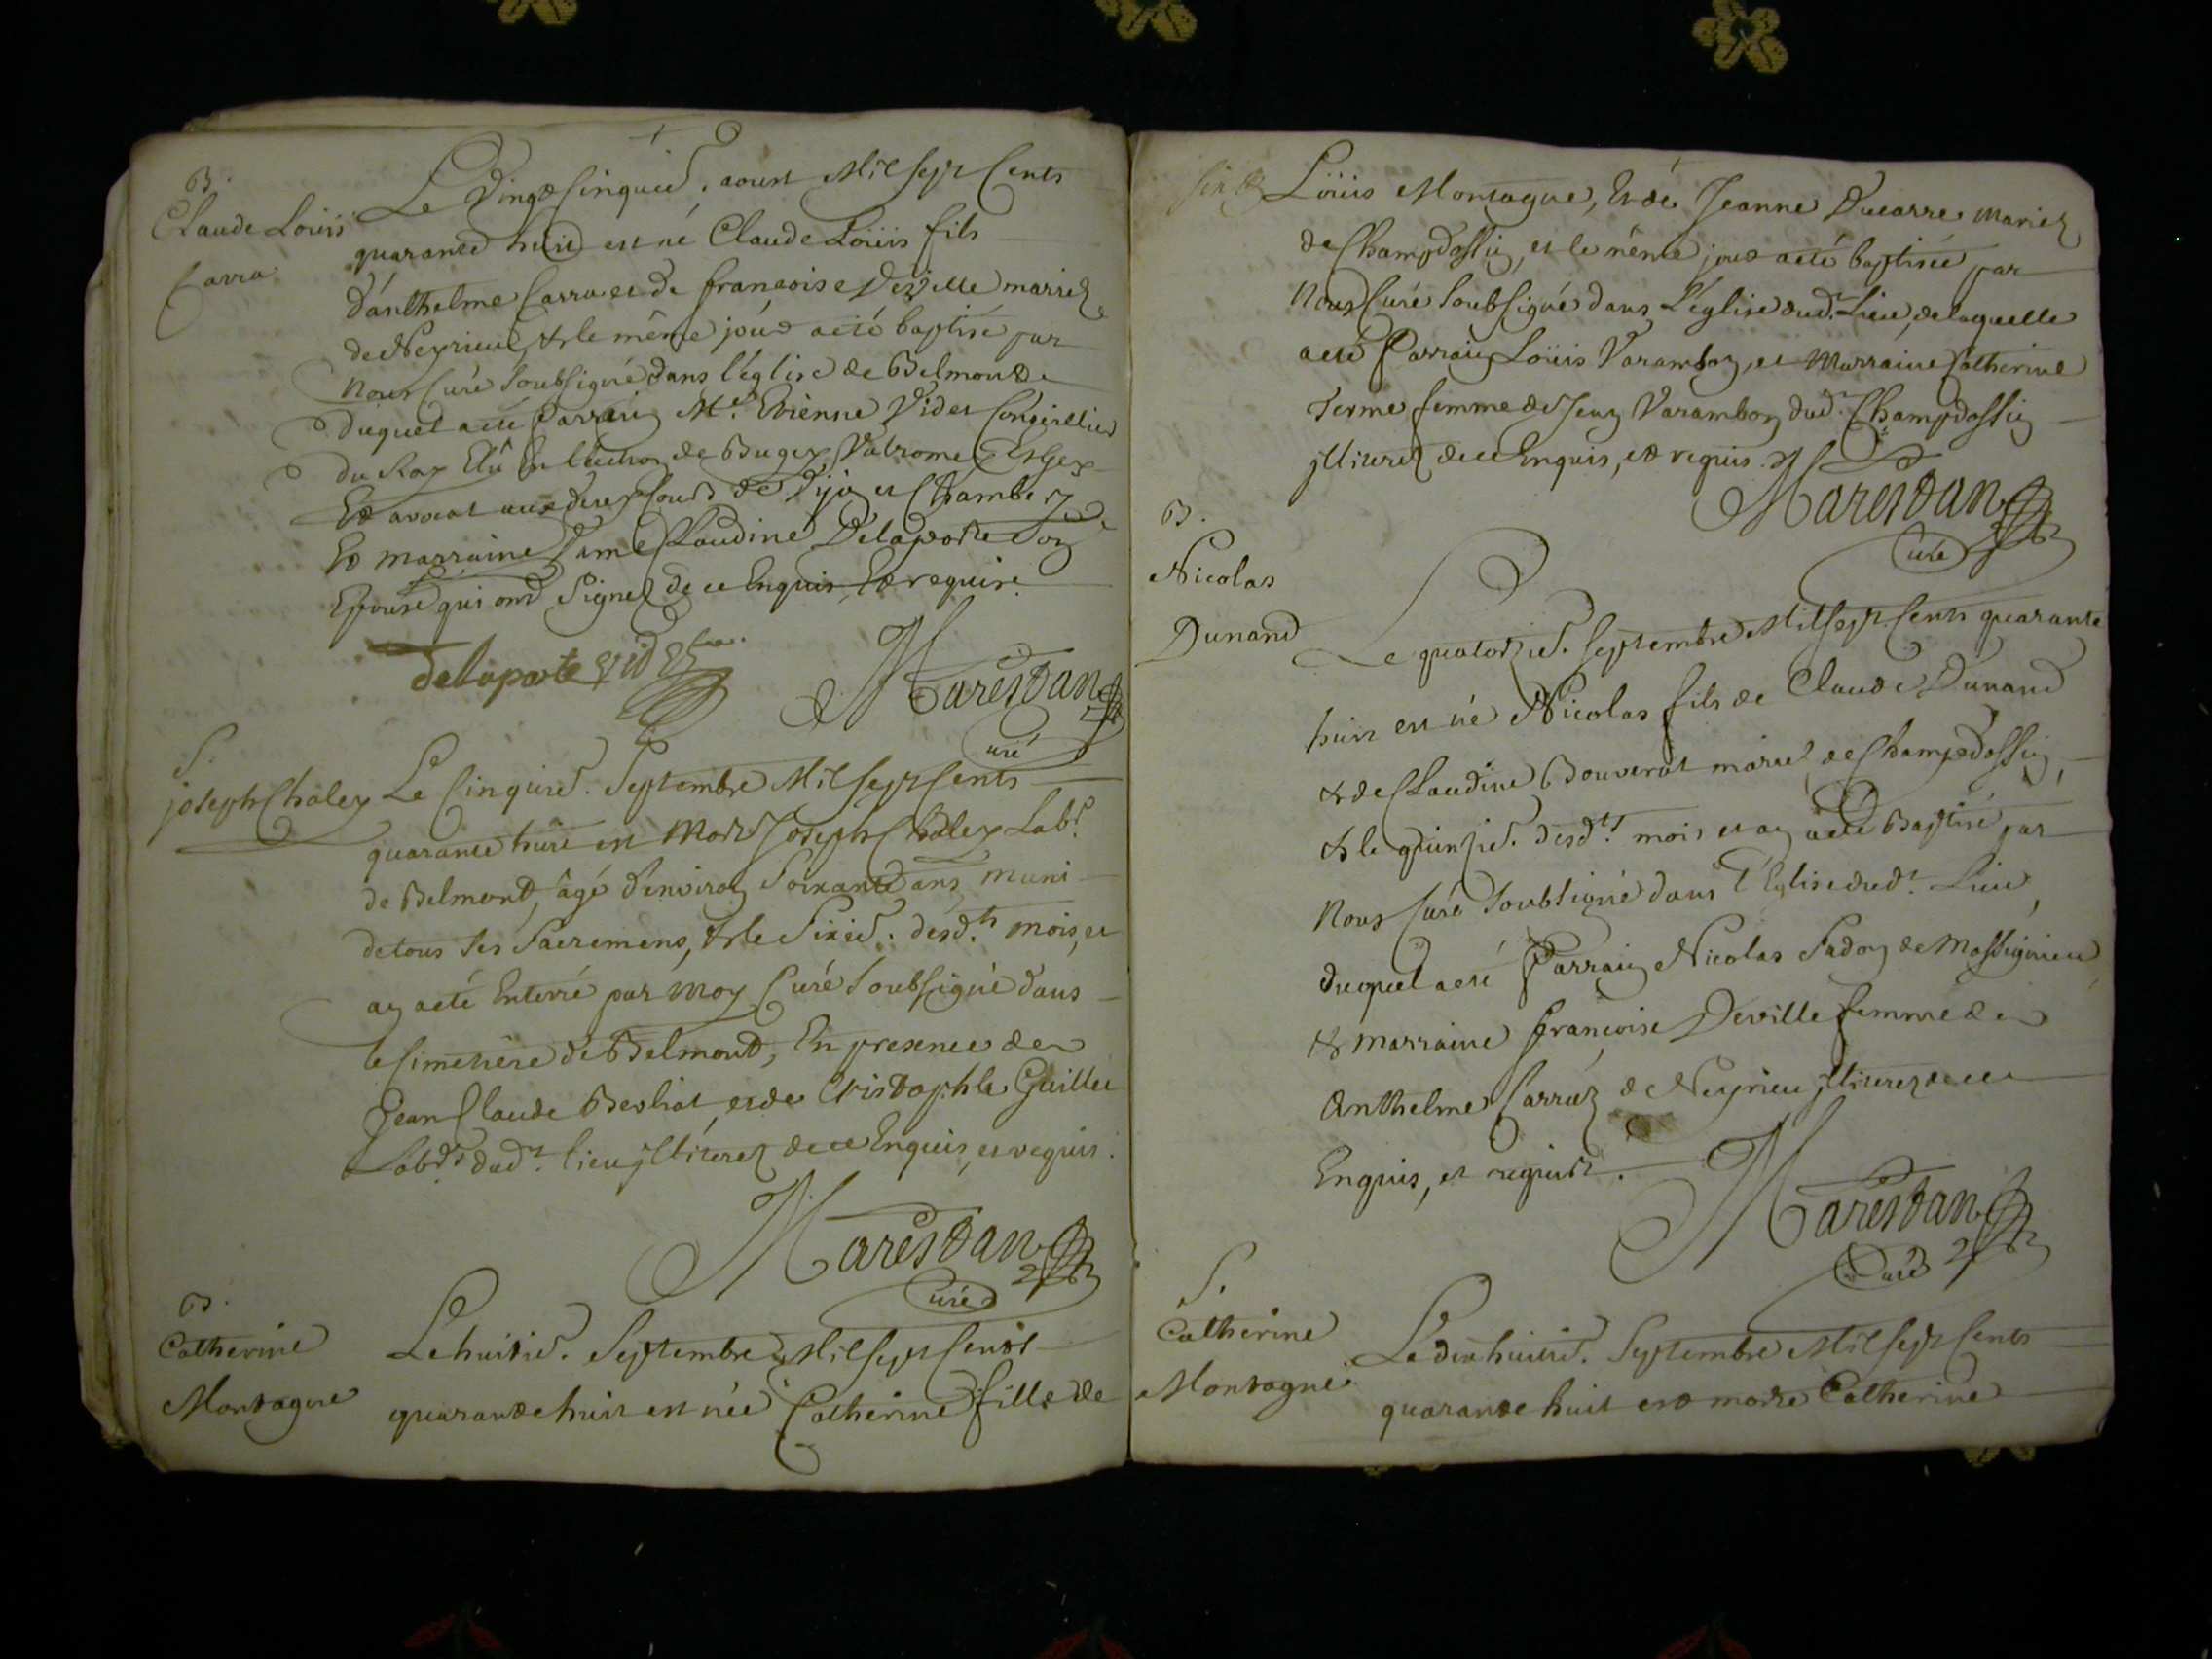 B.
Claude Loüis
Carra.
Le vingt cinquie. aoust Mil sept Cents
quarante huit est né Claude Loüis fils
d'anthelme Carra et de francoise Deville mariez
de Neyrieu, & le même jour a eté baptisé par
nous Curé soubsigné dans l'église de Belmont
duquel a eté Parrain Mr. Etienne Videt Conseillier
du Roy Elû En l'election de Bugey Valromey Et Gex
Et avocat aux deux Cours de Dijon et Chambery
Et marraine Dame Claudine Delaporte son
Epouse qui ont Signez de ce Enquis, Et requise.
delaporte videt
Marestan
Curé
S.
joseph Chaley
Le Cinquie. Septembre Mil sept Cents
quarante huit est Mort Joseph Chaley Labr.
de Belmont, âgé d'environ Soixante ans, muni
de tous ses Sacremens, & le Sixie. desdts. mois, et
an a eté Enterré par moy Curé soubsigné dans
le Cimetière de Belmont, En presence de
Jean Claude Berliat et de Cristophle Guillet
Labrs. dudt. lieu jlliterez de ce Enquis, et requis.
Marestan
Curé
B.
Catherine
Montagne
Le huitie. Septembre Mil sept Cents
quarante huit est née Catherine fille de
Loüis Montagne, Et de Jeanne Ducarre mariez
de Champdossin, et le même jour a eté baptisée par
Nous Curé soubsigné dans l'église dudt. Lieu, de laquelle
a eté Parrain Loüis Varambon, et Marraine Catherine
Terme femme de Jean Varambon dudt. Champdossin
jlliterez de ce Enquis, et requis.
Marestan
Curé
B.
Nicolas
Dunand
Le quatorzie. Septembre Mil sept Cents quarante
huit est né Nicolas fils de Claude Dunand
& de Claudine Bouverat mariez de Champdossin,
& le quinzie. desdts. mois et an a eté Baptisé par
Nous Curé soubsigné dans l'Eglise dudt. Lieu,
duquel a eté Parrain Nicolas Sadon de Massignieu
& marraine francoise Deville femme de
Anthelme Carraz de Neyrieu jlliterez de ce
Enquis, et requis.
Marestan
Curé
S.
Catherine
Montagne.
Le dix huitie. Septembre Mil sept Cents
quarante huit est morte Catherine